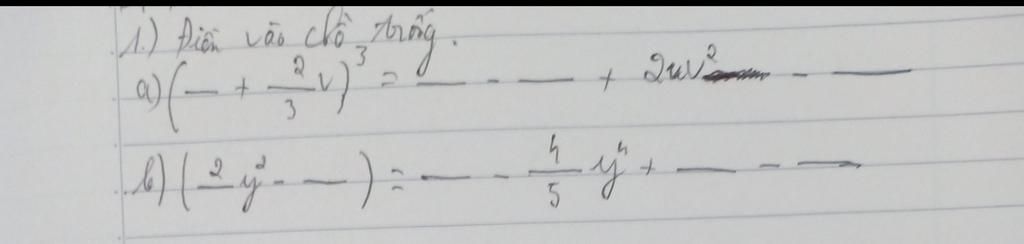 1.) Điền vào chỗ trống.
a) (— + 2/3 v)³ = — - — + 2uv² - —
b) (2/— y² - —) = — - 4/5 y⁴ + — - —